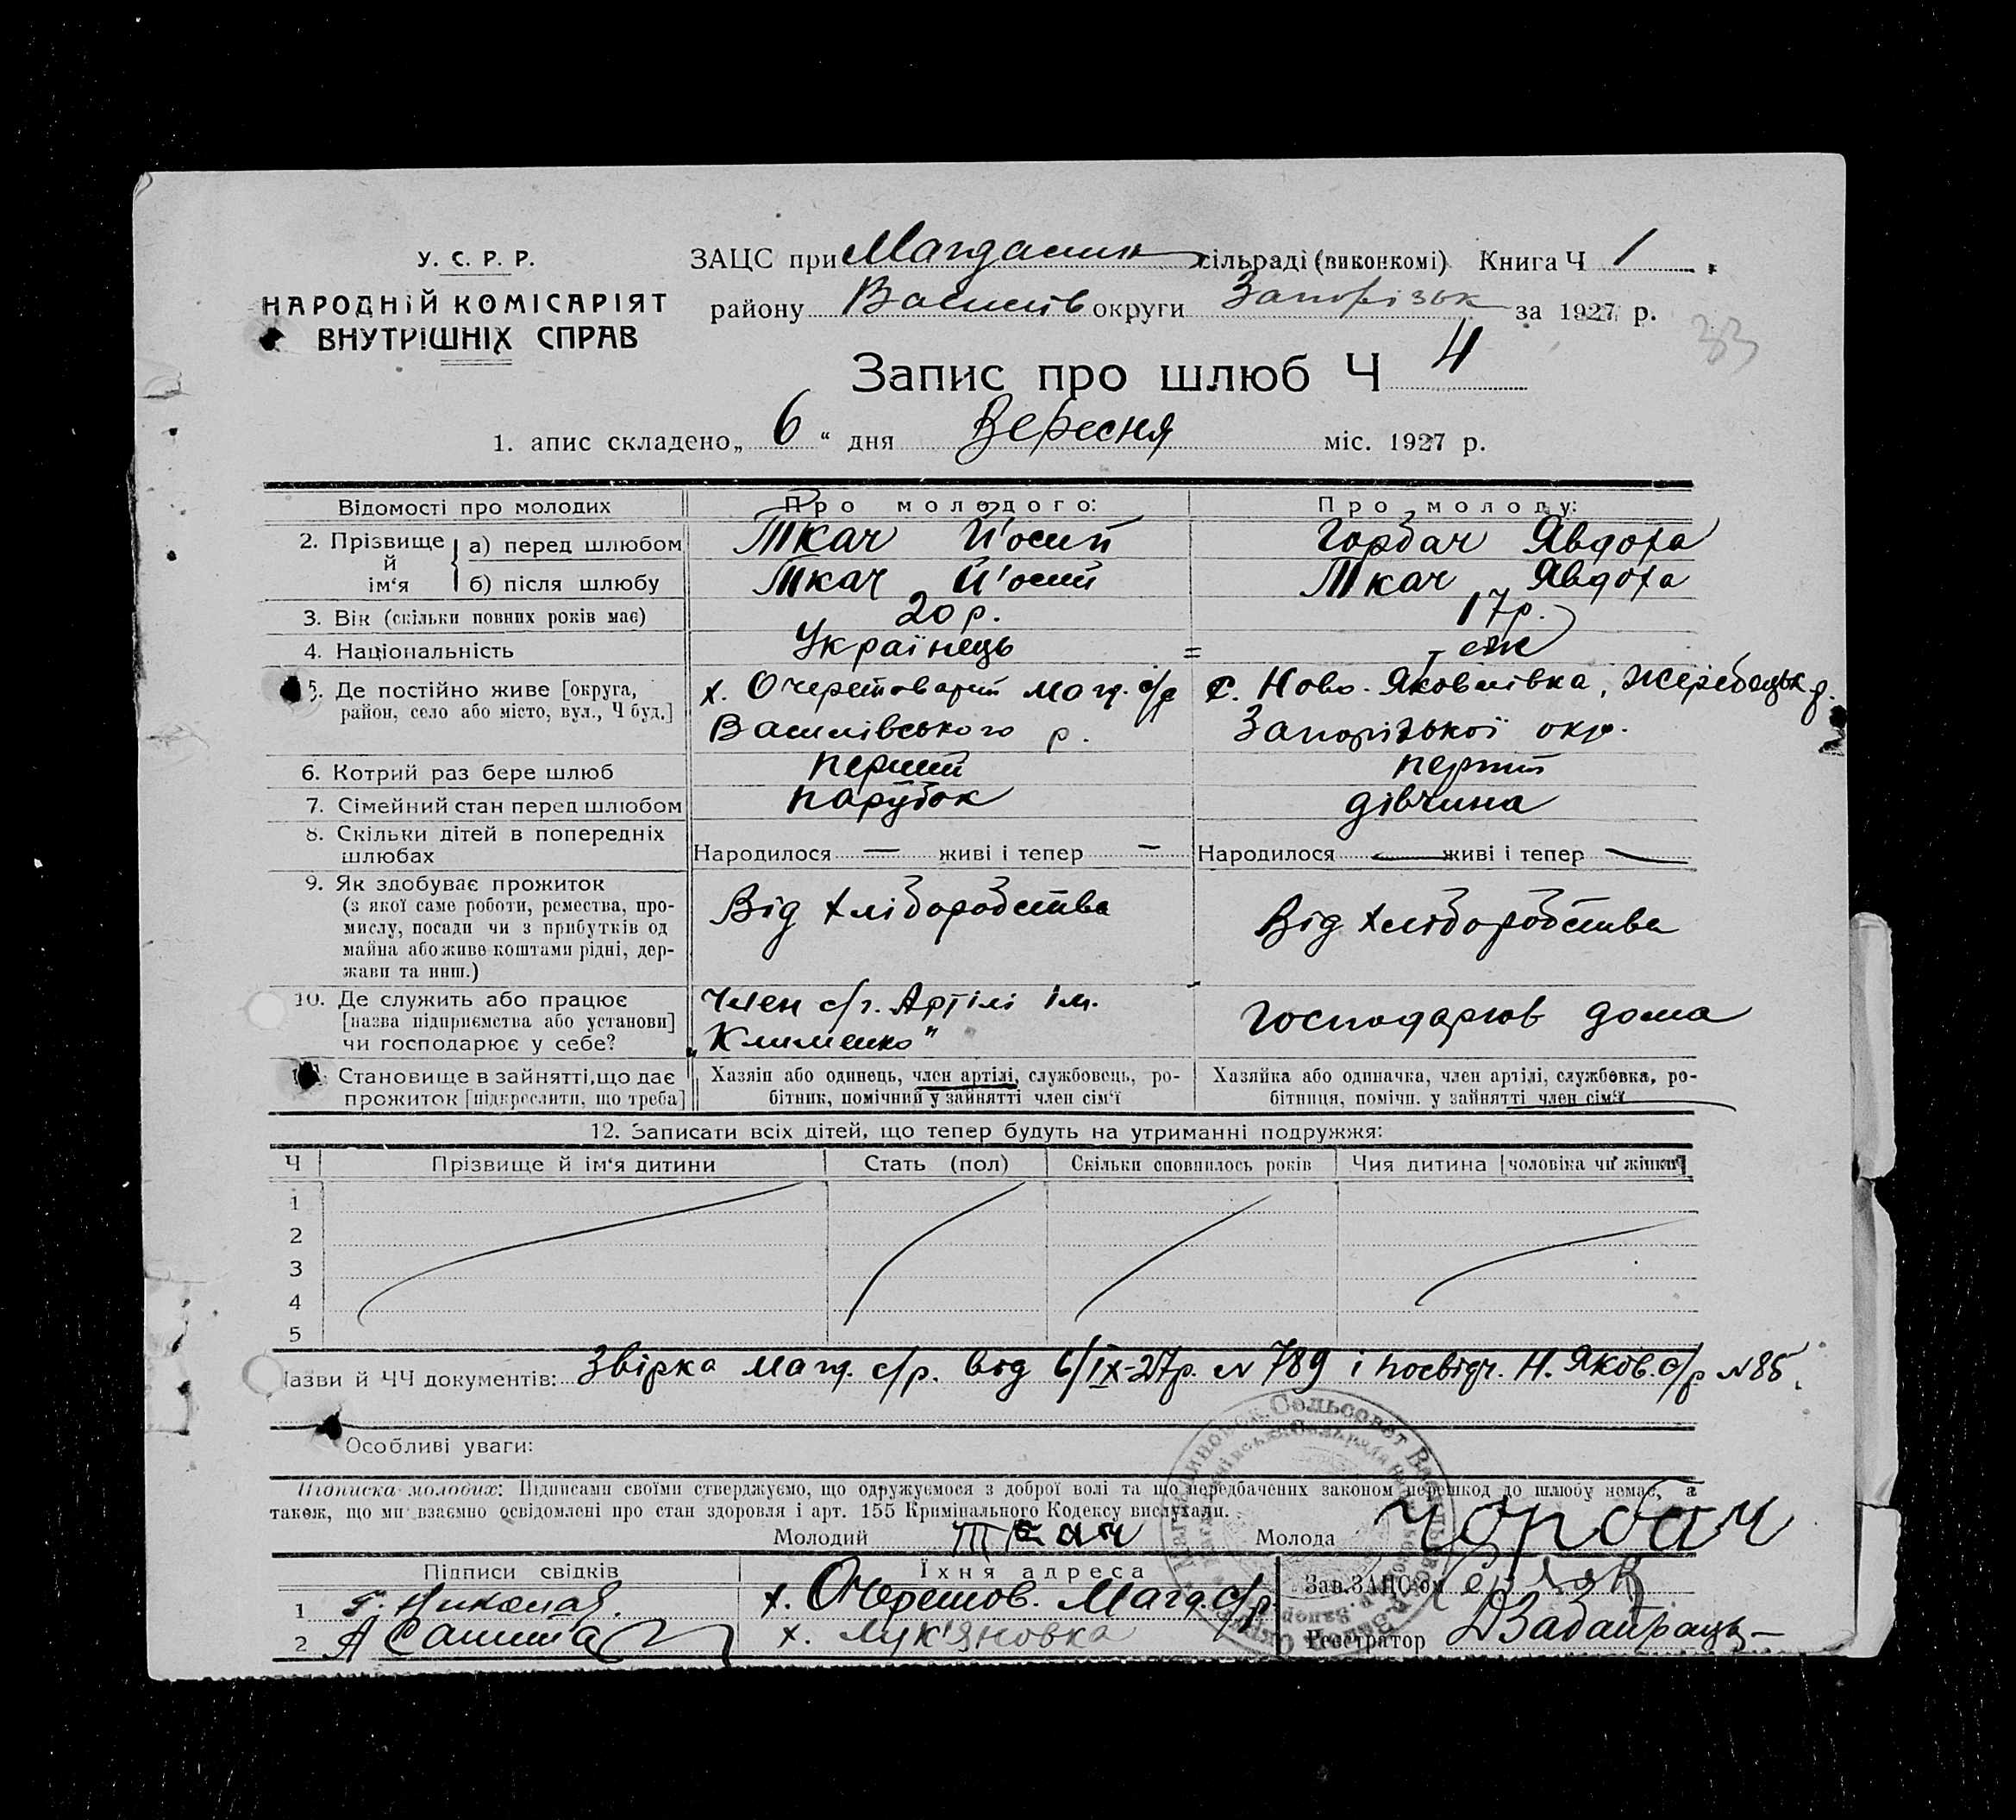 У. С. Р. Р.
НАРОДНІЙ КОМІСАРІЯТ
ВНУТРІШНІХ СПРАВ
ЗАЦС при сільраді (виконкомі) Книга Ч 1
району Василів округи Запорізьк за 1927 р.
33
Запис про шлюб Ч 4
1. апис складено „ 6 “ дня Вересня міс. 1927 р.
Відомості про молодих Про молодого: Про молоду:
2. Прізвище й ім‘я
а) перед шлюбом Ткач Й'осип Горбач Явдоха
б) після шлюбу Ткач Й'осип Ткач Явдоха
3. Вік (скільки повних років має) 20 р. 17 р.
4. Національність Українець = теж
5. Де постійно живе [округа, х. Очеретоватий Магд. с/р с. Ново-Яковлівка, Жеребецьк р.
район, село або місто, вул., Ч буд.] Василівського р. Запорізької окр.
6. Котрий раз бере шлюб перший перший
7. Сімейний стан перед шлюбом парубок дівчина
8. Скільки дітей в попередніх
шлюбах Народилося — живі і тепер — Народилося — живі і тепер —
9. Як здобуває прожиток
(з якої саме роботи, ремества, про-
мислу, посади чи з прибутків од
майна або живе коштами рідні, дер-
жави та инш.)
Від хліборобства Від хліборобства
10. Де служить або працює
[назва підприємства або установи]
чи господарює у себе?
Член с/г. Артілі ім.
„Клименко”
господарюв дома
Становище в зайнятті, що дає
прожиток [підкреслити, що треба]
Хазяін або одинець, член артілі, службовець, ро-
бітник, помічний у зайнятті член сім‘ї
Хазяйка або одиначка, член артілі, службовка, ро-
бітниця, помічн. у зайнятті член сім‘ї
12. Записати всіх дітей, що тепер будуть на утриманні подружжя:
Ч Прізвище й ім‘я дитини Стать (пол) Скільки сповнилось років Чия дитина [чоловіка чи жінки]
1
2
3
4
5
Назви й ЧЧ документів: Звірка Магд. с/р. від 6/IX-27р. N 789 і посвідч. Н. Яков. с/р N 85.
Особливі уваги:
Підписка молодих: Підписами своїми стверджуємо, що одружуємося з доброї волі та що передбачених законом перешкод до шлюбу немає, а
також, що ми взаємно освідомлені про стан здоровля і арт. 155 Кримінального Кодексу вислухали.
Молодий Ткач Молода Горбач
Підписи свідків Їхня адреса Зав. ЗАЦС‘ом
1 х. Очеретов. Магд. с/р.
2 х. Лук'яновка Реєстратор